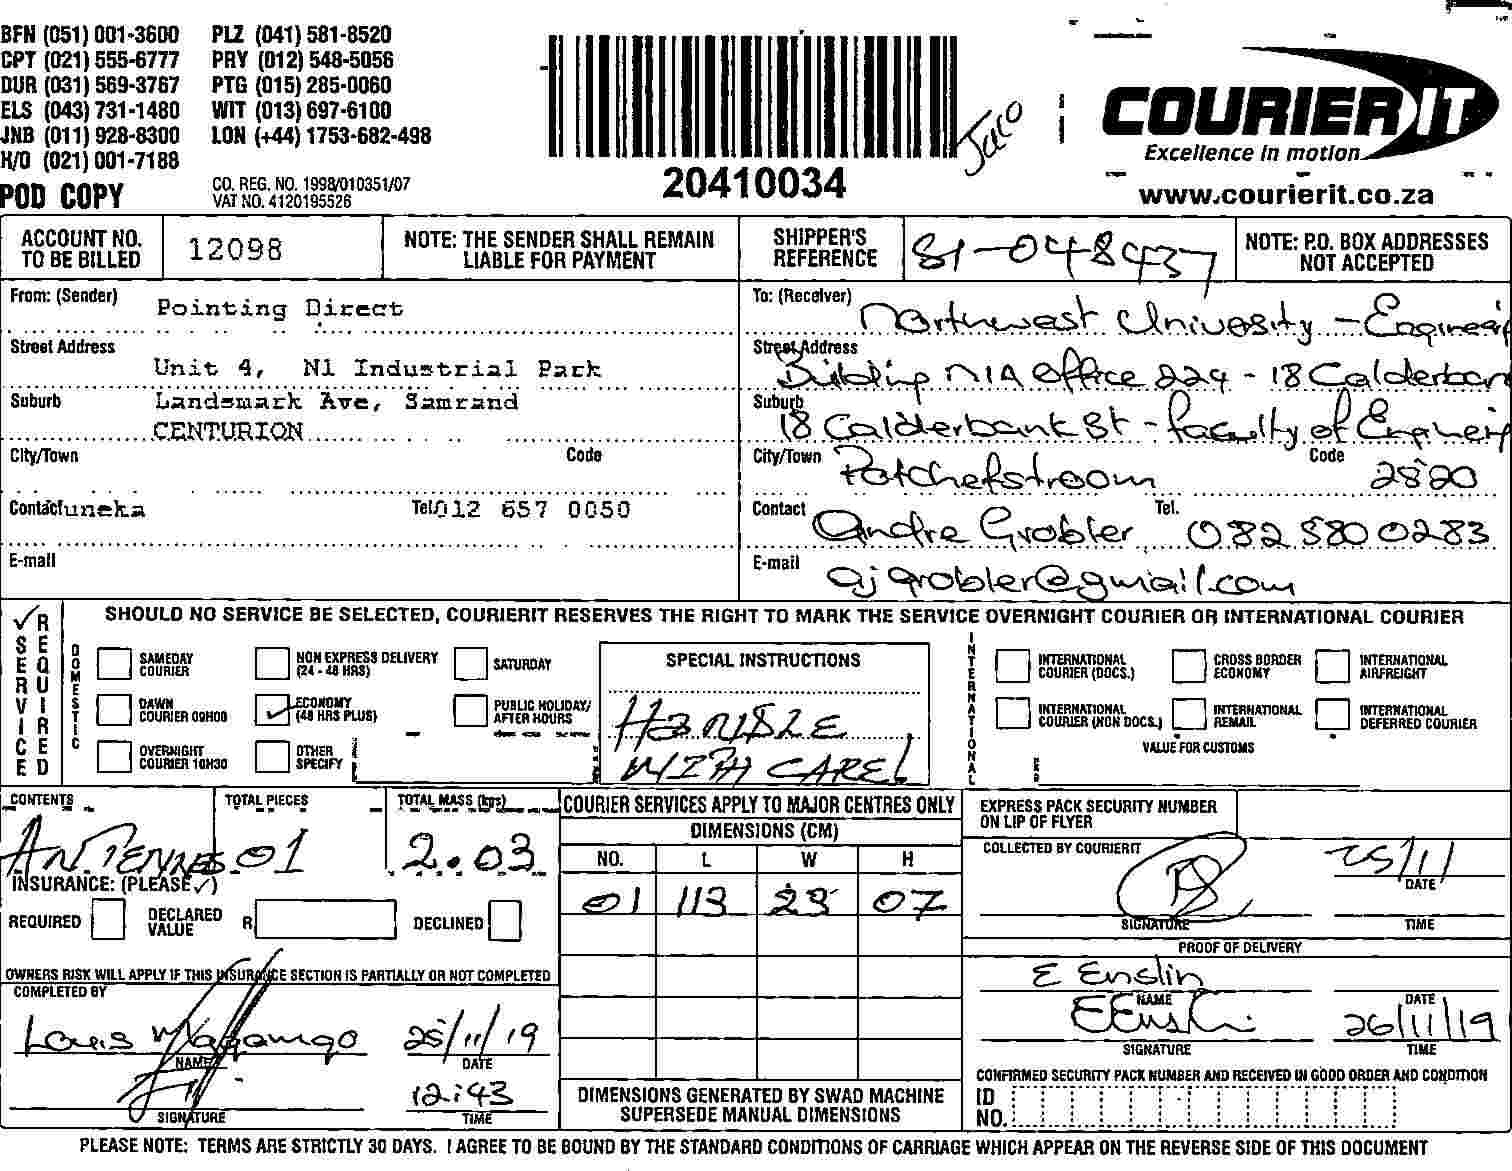 BFN (051) 001-3600 PLZ (041) 581-8520
CPT (021) 555-6777 PRY (012) 548-5056
DUR (031) 569-3767 PTG (015) 285-0060
ELS (043) 731-1480 WIT (013) 697-6100
JNB (011) 928-8300 LON (+44) 1753-682-498
H/O (021) 001-7188
POD COPY
CO. REG. NO. 1998/010351/07
VAT NO. 4120195526
20410034
Jaco
COURIER IT
Excellence in motion
www.courierit.co.za
ACCOUNT NO. TO BE BILLED
12098
NOTE: THE SENDER SHALL REMAIN LIABLE FOR PAYMENT
SHIPPER'S REFERENCE
81-048437
NOTE: P.O. BOX ADDRESSES NOT ACCEPTED
From: (Sender) Pointing Direct
Street Address Unit 4, N1 Industrial Park
Suburb Landsmark Ave, Samrand
CENTURION
City/Town Code
Contact uneka Tel 012 657 0050
E-mail
To: (Receiver) Northwest University - Engineeri
Street Address Building N1A Office 224 - 18 Calderban
Suburb 18 Calderbank St - faculty of Engineeri
City/Town Potchefstroom Code 2820
Contact Andre Grobler Tel. 082 580 0283
E-mail ajgrobler@gmail.com
SERVICE REQUIRED
SHOULD NO SERVICE BE SELECTED, COURIERIT RESERVES THE RIGHT TO MARK THE SERVICE OVERNIGHT COURIER OR INTERNATIONAL COURIER
DOMESTIC
SAMEDAY COURIER
NON EXPRESS DELIVERY (24 - 48 HRS)
SATURDAY
DAWN COURIER 09H00
ECONOMY (48 HRS PLUS)
PUBLIC HOLIDAY/ AFTER HOURS
OVERNIGHT COURIER 10H30
OTHER SPECIFY
SPECIAL INSTRUCTIONS
HANDLE
WITH CARE!
INTERNATIONAL
INTERNATIONAL COURIER (DOCS.)
CROSS BORDER ECONOMY
INTERNATIONAL AIRFREIGHT
INTERNATIONAL COURIER (NON DOCS.)
INTERNATIONAL REMAIL
INTERNATIONAL DEFERRED COURIER
VALUE FOR CUSTOMS
CONTENTS TOTAL PIECES TOTAL MASS (kgs)
ANTENNES 01 2.03
INSURANCE: (PLEASE ✓)
REQUIRED DECLARED VALUE R DECLINED
OWNERS RISK WILL APPLY IF THIS INSURANCE SECTION IS PARTIALLY OR NOT COMPLETED
COMPLETED BY
Louis 25/11/19
NAME DATE
12:43
SIGNATURE TIME
COURIER SERVICES APPLY TO MAJOR CENTRES ONLY
DIMENSIONS (CM)
NO. L W H
01 113 23 07
DIMENSIONS GENERATED BY SWAD MACHINE
SUPERSEDE MANUAL DIMENSIONS
EXPRESS PACK SECURITY NUMBER
ON LIP OF FLYER
COLLECTED BY COURIERIT
25/11
DATE
SIGNATURE TIME
PROOF OF DELIVERY
E Enslin
NAME DATE
EEnslin 26/11/19
SIGNATURE TIME
CONFIRMED SECURITY PACK NUMBER AND RECEIVED IN GOOD ORDER AND CONDITION
ID NO.
PLEASE NOTE: TERMS ARE STRICTLY 30 DAYS. I AGREE TO BE BOUND BY THE STANDARD CONDITIONS OF CARRIAGE WHICH APPEAR ON THE REVERSE SIDE OF THIS DOCUMENT